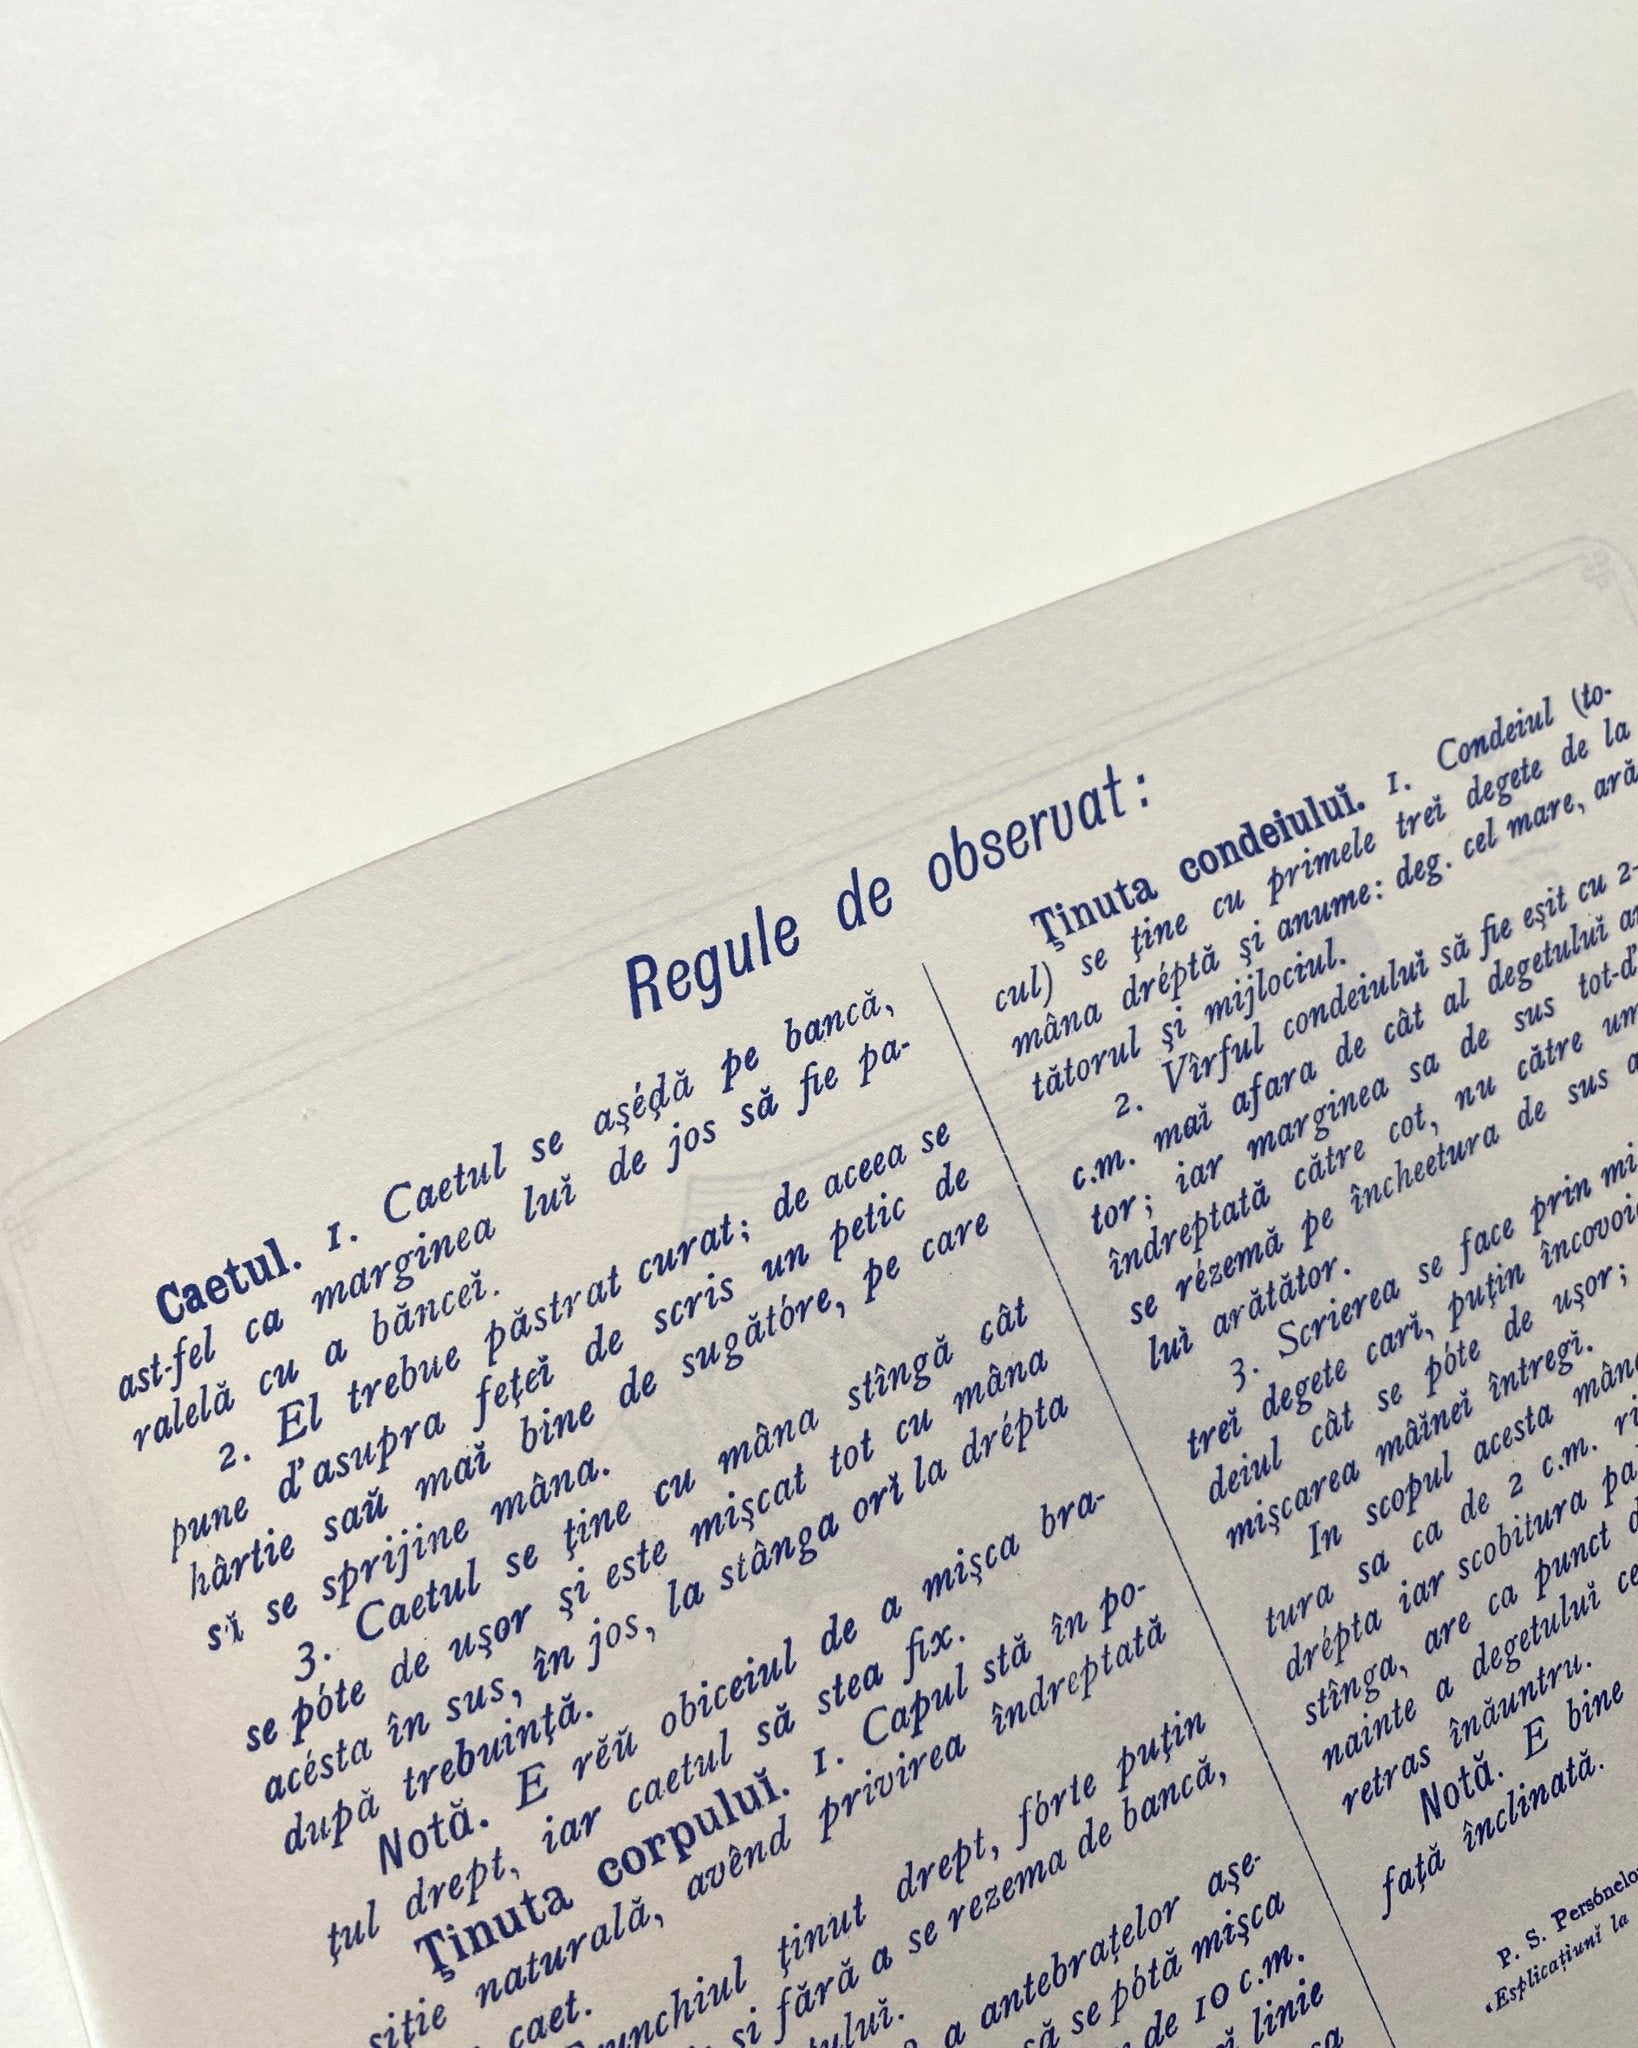 Regule de observat:
Caetul. 1. Caetul se aşéḑă pe bancă,
ast-fel ca marginea luĭ de jos să fie pa-
ralelă cu a băncei.
2. El trebue păstrat curat; de aceea se
pune d'asupra feţeĭ de scris un petic de
hârtie saŭ maĭ bine de sugătóre, pe care
s'ĭ se sprijine mâna.
3. Caetul se ţine cu mâna stîngă cât
se póte de uşor şi este mişcat tot cu mâna
acésta în sus, în jos, la stânga orĭ la drépta
după trebuinţă.
Notă. E rĕŭ obiceiul de a mişca bra-
ţul drept, iar caetul să stea fix.
Ţinuta corpuluĭ. 1. Capul stă în po-
siţie naturală, avênd privirea îndreptată
caet.
ţinut drept, fórte puţin
şi fără a se rezema de bancă,
a antebraţelor aşe-
să se pótă mişca
de 10 c.m.
linie
Ţinuta condeiuluĭ. 1. Condeiul (to-
cul) se ţine cu primele treĭ degete de la
mâna dréptă şi anume: deg. cel mare, ară
tătorul şi mijlociul.
2. Vîrful condeiuluĭ să fie eşit cu 2-
c.m. maĭ afara de cât al degetuluĭ
tor; iar marginea sa de sus tot-d'
îndreptată către cot, nu către
se rézemă pe încheetura de sus
luĭ arătător.
3. Scrierea se face prin
treĭ degete carĭ, puţin
deiul cât se póte de uşor;
mişcarea mâĭneĭ întregĭ.
In scopul acesta
tura sa ca de 2 c.m.
drépta iar scobitura
stînga, are ca punct
nainte a degetuluĭ
retras înăuntru.
Notă. E bine
faţă înclinată.
P. S.
Esplicaţiunĭ la